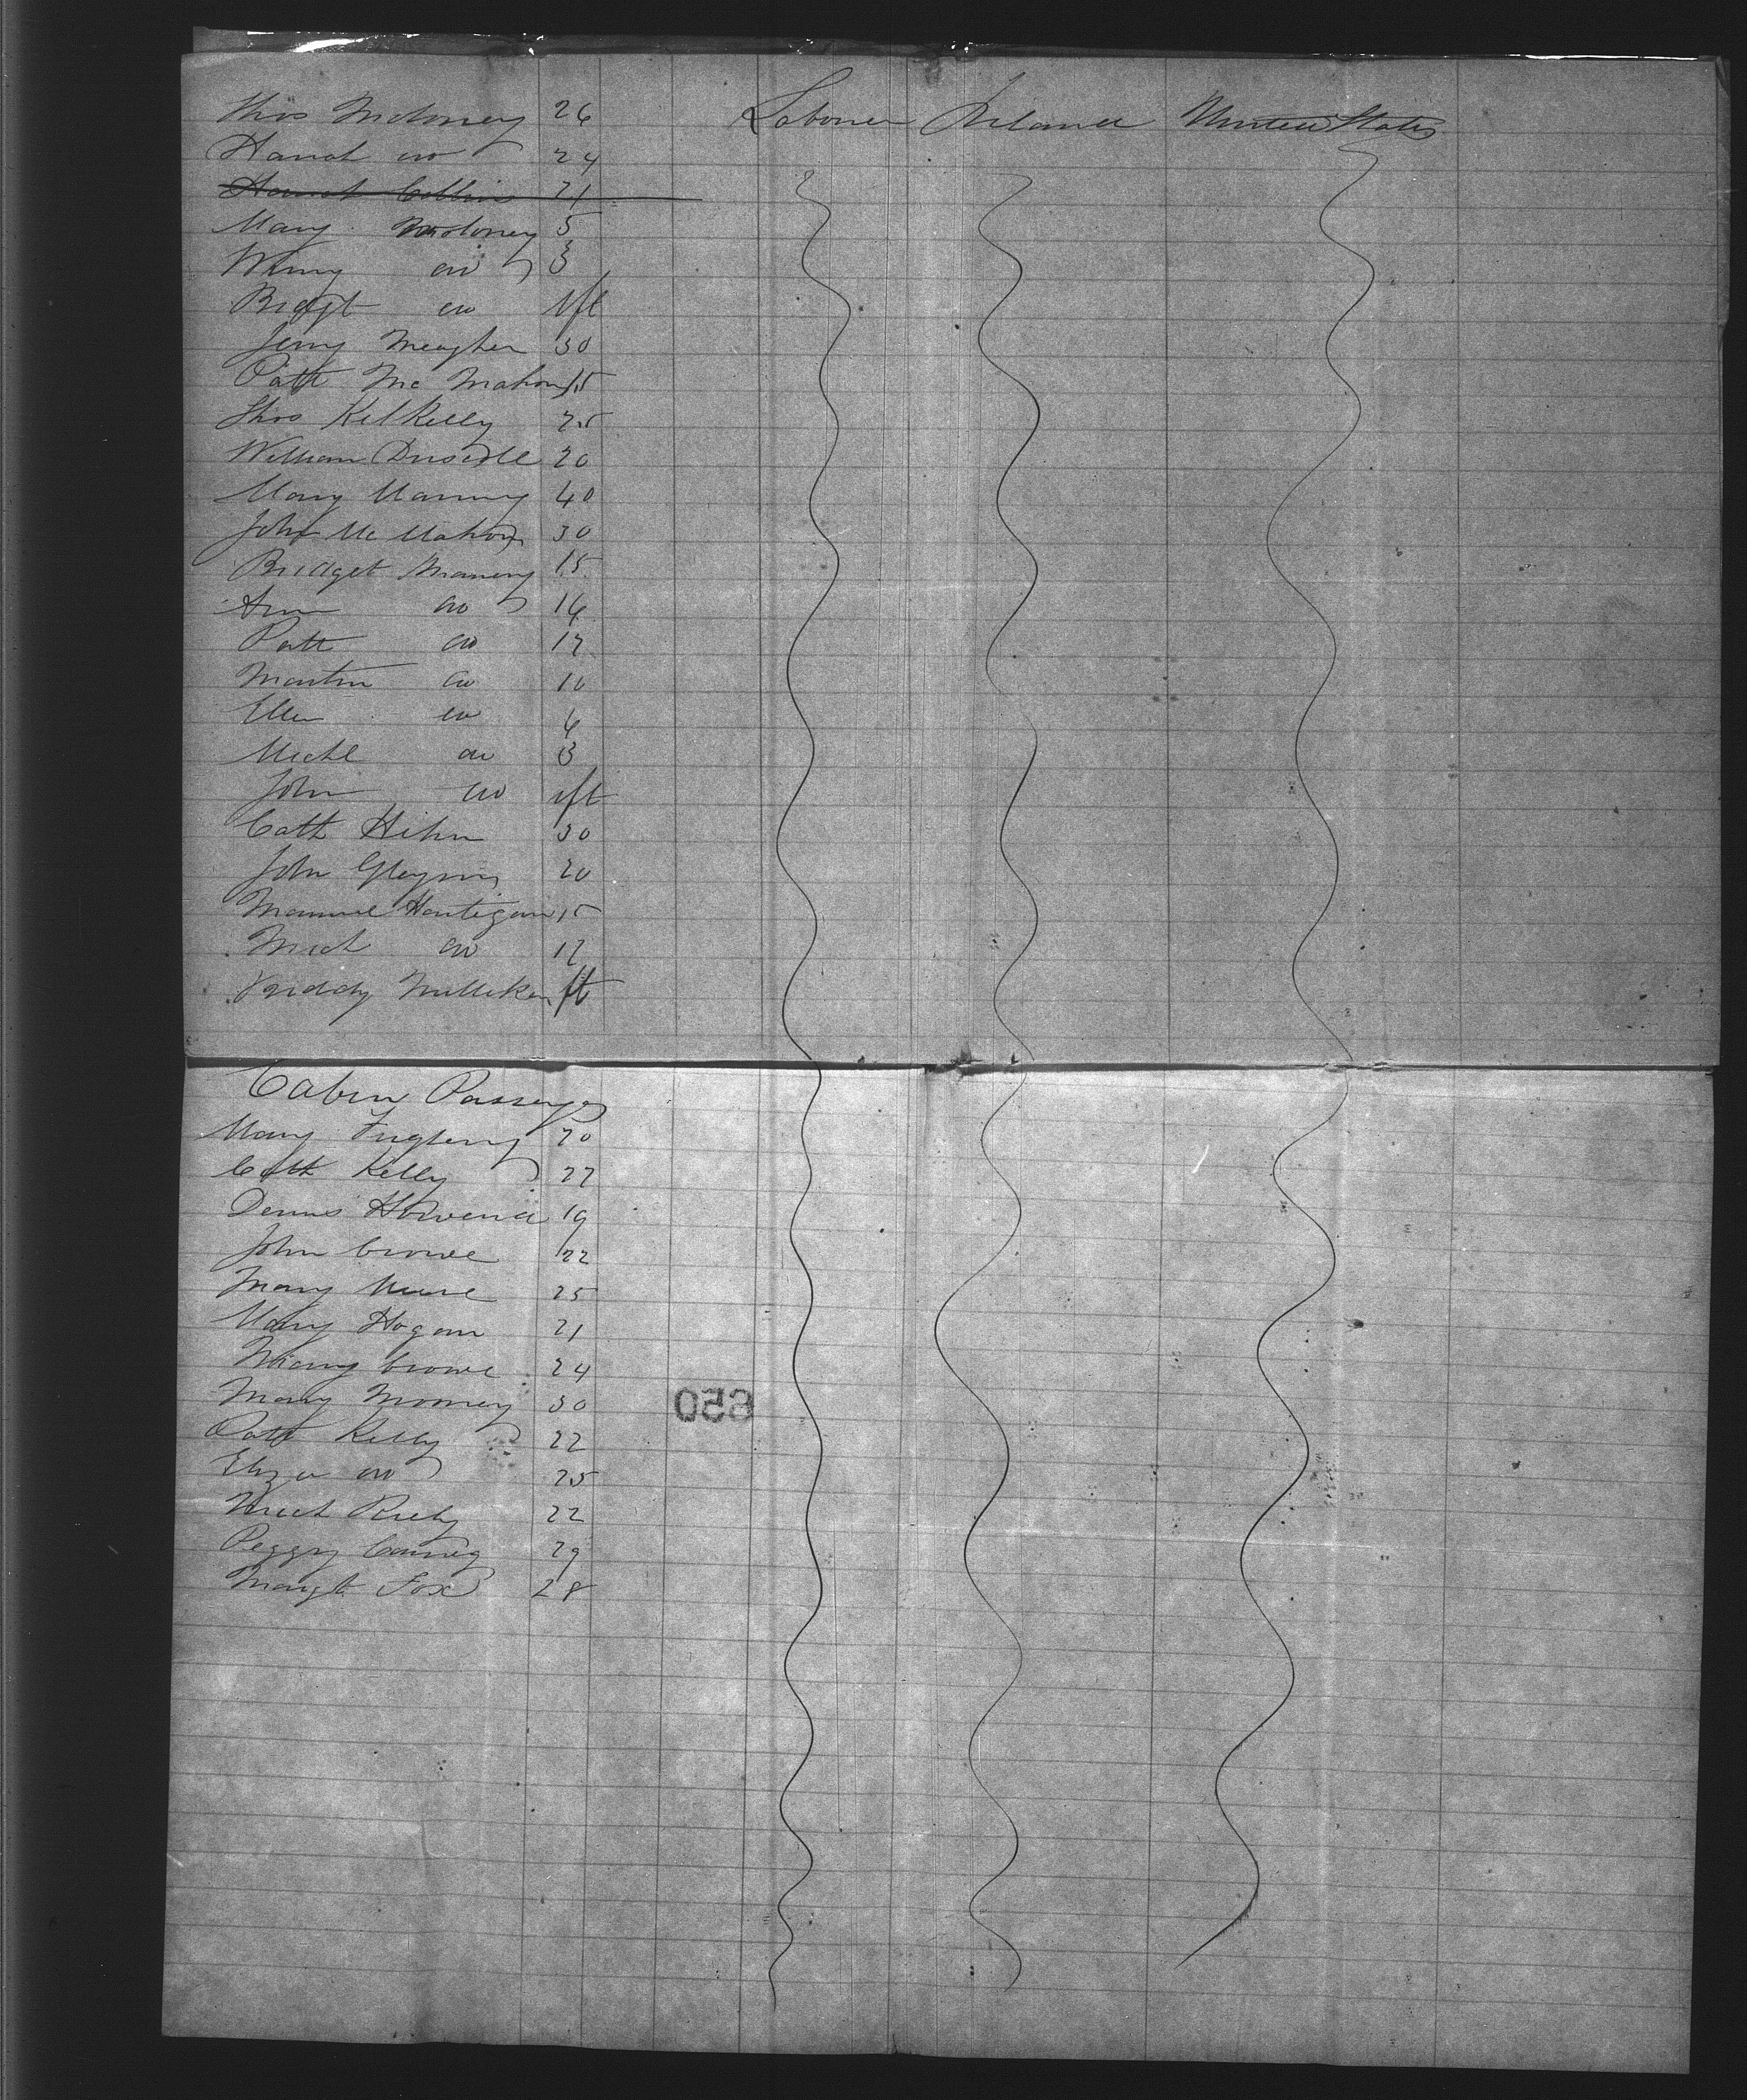 Thos Moloney 26 Laborer Ireland United States
Hanah do 24
Hanah Collins 21
Mary Moloney 5
Winny do 3
Bridgt do Ift
Jerry Meagher 30
Patt Mc Mahon 15
Thos Kilkelly 25
William Driscoll 20
Mary Manny 40
John Mc Mahon 30
Bridget Maneny 15
Ann do 14
Patt do 12
Martin do 10
Ellen do 6
Michl do 3
John do ift
Cath Hihn 30
John 20
Hartigan 15
Mich do 12
Milliken ft
Cabin Passengers
Mary 20
Cath Kelly 22
Dennis 19
John Crowe 22
Mary 25
Mary Hogan 21
Mary Crowe 24
Mary Mooney 30
650
Patt Kelly 22
Eliza do 25
Mich 22
Peggy 29
Margt Fox 28